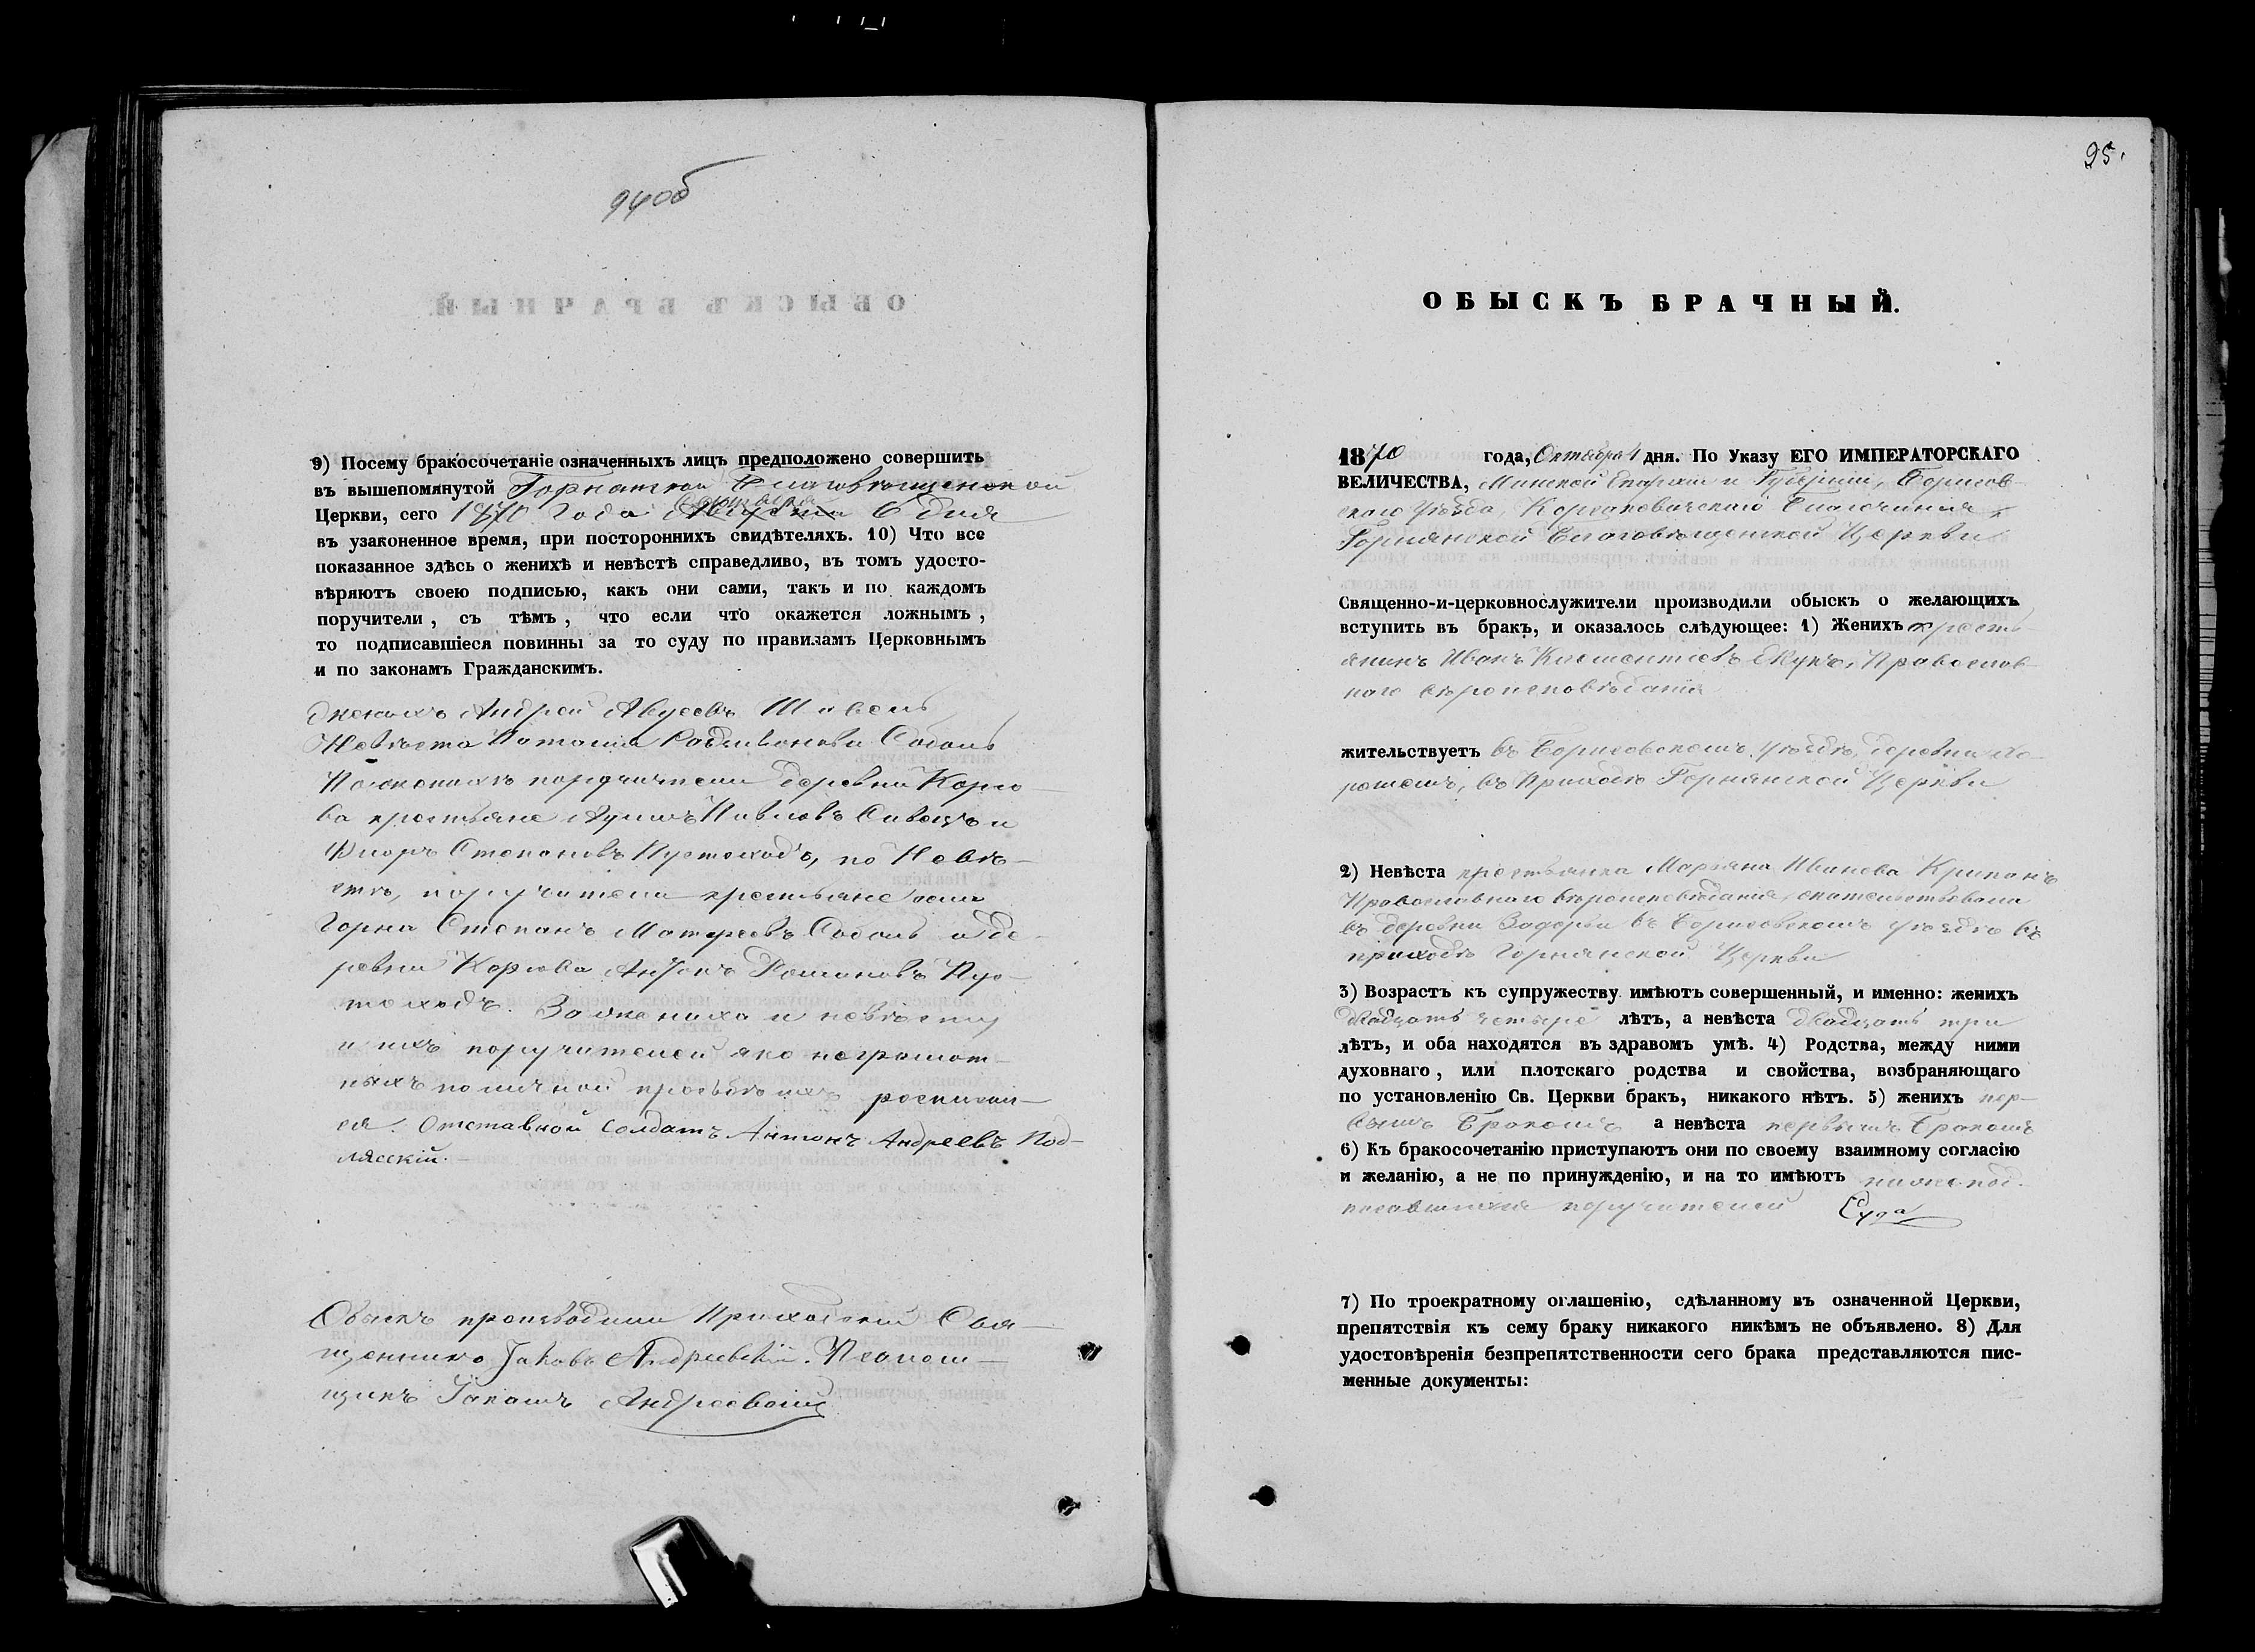 94об
9) Посему бракосочетаніе означенныхъ лицъ предположено совершить
въ вышепомянутой Горнатской Благовѣщенской
Церкви, сего 1870 года 6 дня
въ узаконенное время, при постороннихъ свидѣтеляхъ. 10) Что все
показанное здѣсь о женихѣ и невѣстѣ справедливо, въ томъ удосто-
вѣряютъ своею подписью, какъ они сами, такъ и по каждомъ
поручители, съ тѣмъ, что если что окажется ложнымъ,
то подписавшіеся повинны за то суду по правиламъ Церковнымъ
и по законамъ Гражданскимъ.
Женихъ Андрей
Невѣста Соболь
По женихѣ поручители деревни Корсо-
ва крестьяне Павловъ и
Флоръ Степановъ Пустоходъ, по Невѣ-
стѣ, поручители крестьяне села
Горна Степанъ Соболь и де-
ревни Корсова Романовъ Пус-
тоходъ. За жениха и невѣсту
и ихъ поручителей яко неграмот-
ныхъ по личной просьбѣ ихъ росписал-
ся. Отставной Солдатъ Антонъ Андреевъ Под-
лясскій.
Обыскъ производили Приходскій Свя-
щенникъ Іаковъ Андріевскій. Псалом-
щикъ Андреевскій
95.
ОБЫСКЪ БРАЧНЫЙ.
1870 года, Октября 4 дня. По Указу ЕГО ИМПЕРАТОРСКАГО
ВЕЛИЧЕСТВА, Минской Епархіи и Губерніи, Борисов-
скаго уѣзда, Корсаковичскаго Благочинія
Горнянской Благовѣщенской Церкви
Священно-и-церковнослужители производили обыскъ о желающихъ
вступить въ бракъ, и оказалось слѣдующее: 1) Женихъ кресть-
янинъ Иванъ Клементіевъ Православ-
наго вѣроисповѣданія
жительствуетъ въ Борисовскомъ уѣздѣ, деревни
въ Приходѣ Горнянской Церкви
2) Невѣста крестьянка Марьяна Иванова
Православнаго вѣроисповѣданія, жительствовала
въ деревни Задорьи въ Борисовскомъ уѣздѣ въ
приходѣ Горнянской Церкви
3) Возрастъ къ супружеству имѣютъ совершенный, и именно: женихъ
двадцать четыре лѣтъ, а невѣста двадцать три
лѣтъ, и оба находятся въ здравомъ умѣ. 4) Родства, между ними
духовнаго, или плотскаго родства и свойства, возбраняющаго
по установленію Св. Церкви бракъ, никакого нѣтъ. 5) женихъ пер-
вымъ Бракомъ а невѣста первымъ Бракомъ
6) Къ бракосочетанію приступаютъ они по своему взаимному согласію
и желанію, а не по принужденію, и на то имѣютъ нижепод-
писавшихся поручителей
7) По троекратному оглашенію, сдѣланному въ означенной Церкви,
препятствія къ сему браку никакого никѣмъ не объявлено. 8) Для
удостовѣренія безпрепятственности сего брака представляются пис-
менные документы: